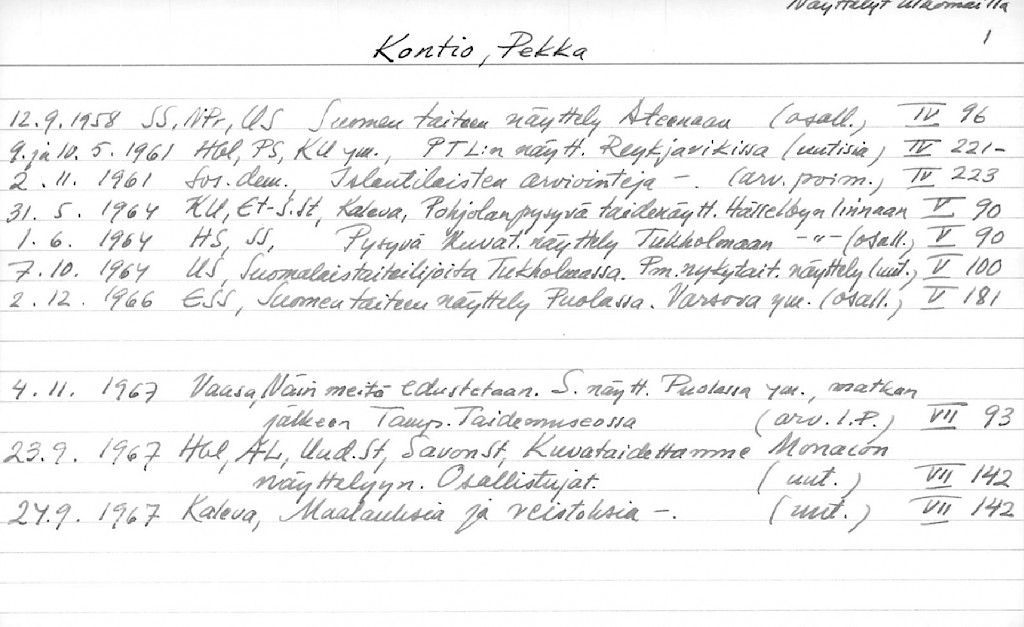 Näyttelyt ulkomailla
1
Kontio, Pekka
12.9.1958 SS, NPr, US Suomen taiteen näyttely Ateenaan (osall.) IV 96
9. ja 10. 5. 1961 Hbl, PS, KU ym., PTL:n näytt. Reykjavikissa (uutisia) IV 221-
2. 11. 1961 Sos.dem., Islantilaisten arviointeja -. (arv. poim.) IV 223
31. 5. 1964 KU, Et-S.St, Kaleva, Pohjolan pysyvä taidenäytt. Hässelbyn linnaan V 90
1. 6. 1964 HS, SS, Pysyvä kuvat. näyttely Tukholmaan -"- (osall.) V 90
7. 10. 1964 US, Suomalaistaiteilijoita Tukholmassa. Pm. nykytait. näyttely (uut.) V 100
2. 12. 1966 ESS, Suomen taiteen näyttely Puolassa. Varsova ym. (osall.) V 181
4. 11. 1967 Vaasa, Näin meitä edustetaan. S. näytt. Puolassa ym., matkan
jälkeen Tamp. Taidemuseossa (arv. I.P.) VII 93
23. 9. 1967 Hbl, AL, Uud.St, SavonSt, Kuvataidettamme Monacon
näyttelyyn. Osallistujat. (uut.) VII 142
24.9. 1967 Kaleva, Maalauksia ja veistoksia -. (uut.) VII 142